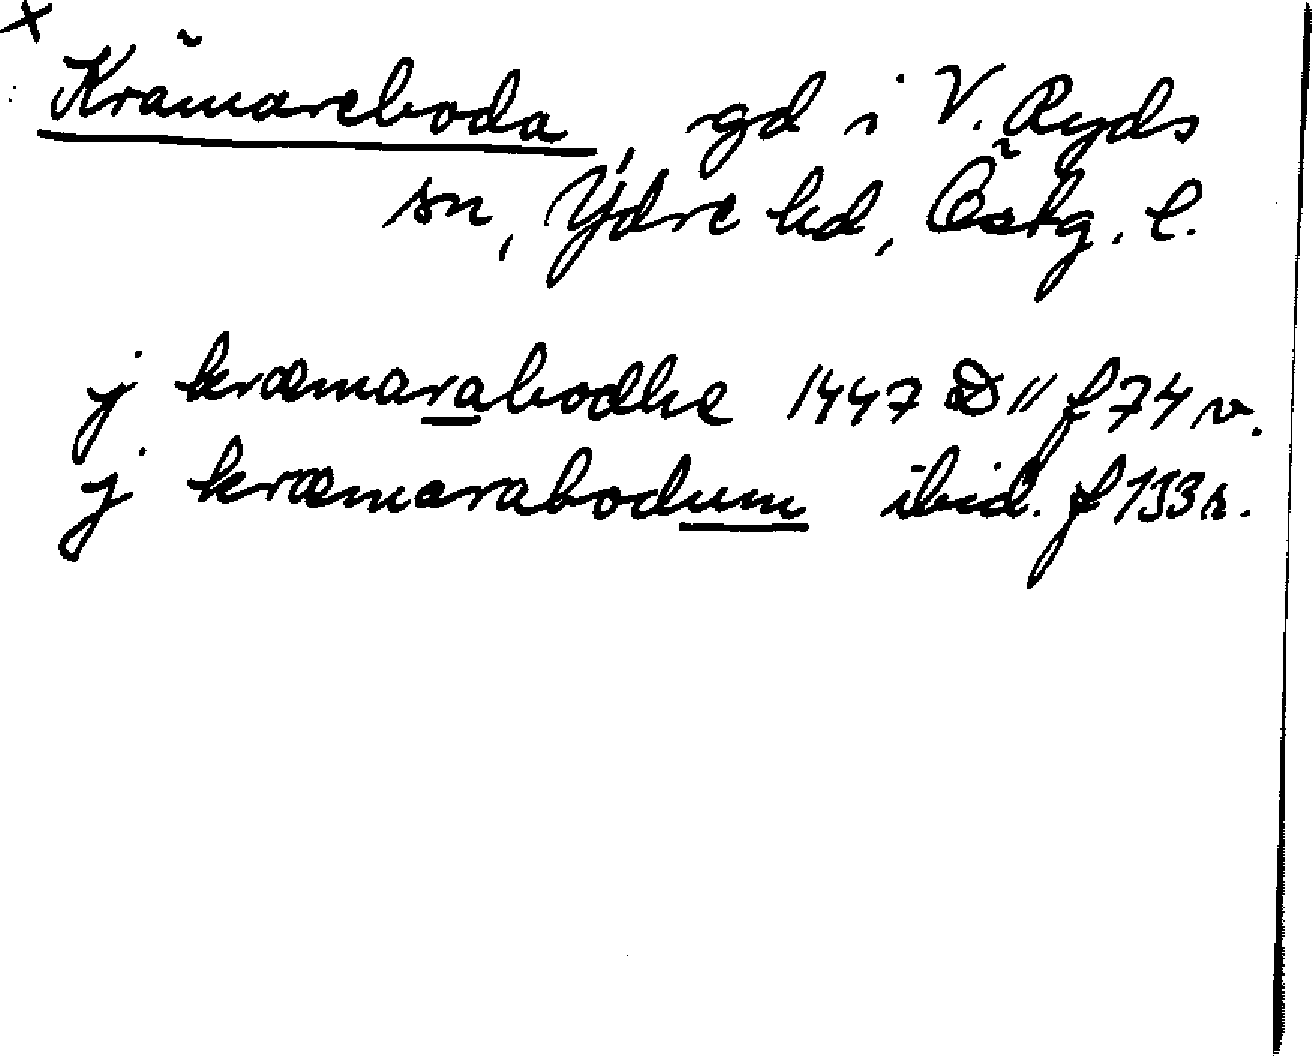 ×
Krämareboda, gd i V. Ryds
sn, Ydre hd, Östg. l.
j kræmarabodhe 1447 D 11 f 74 v.
j kræmarabodum ibid. f 133 r.